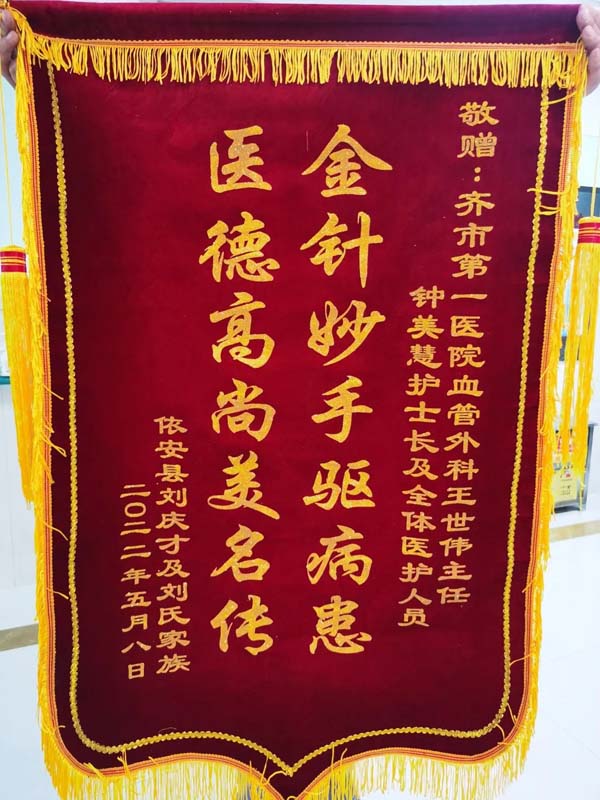 敬赠：齐市第一医院血管外科王世伟主任
钟美慧护士长及全体医护人员
金针妙手驱病患
医德高尚美名传
依安县刘庆才及刘氏家族
二〇二二年五月八日